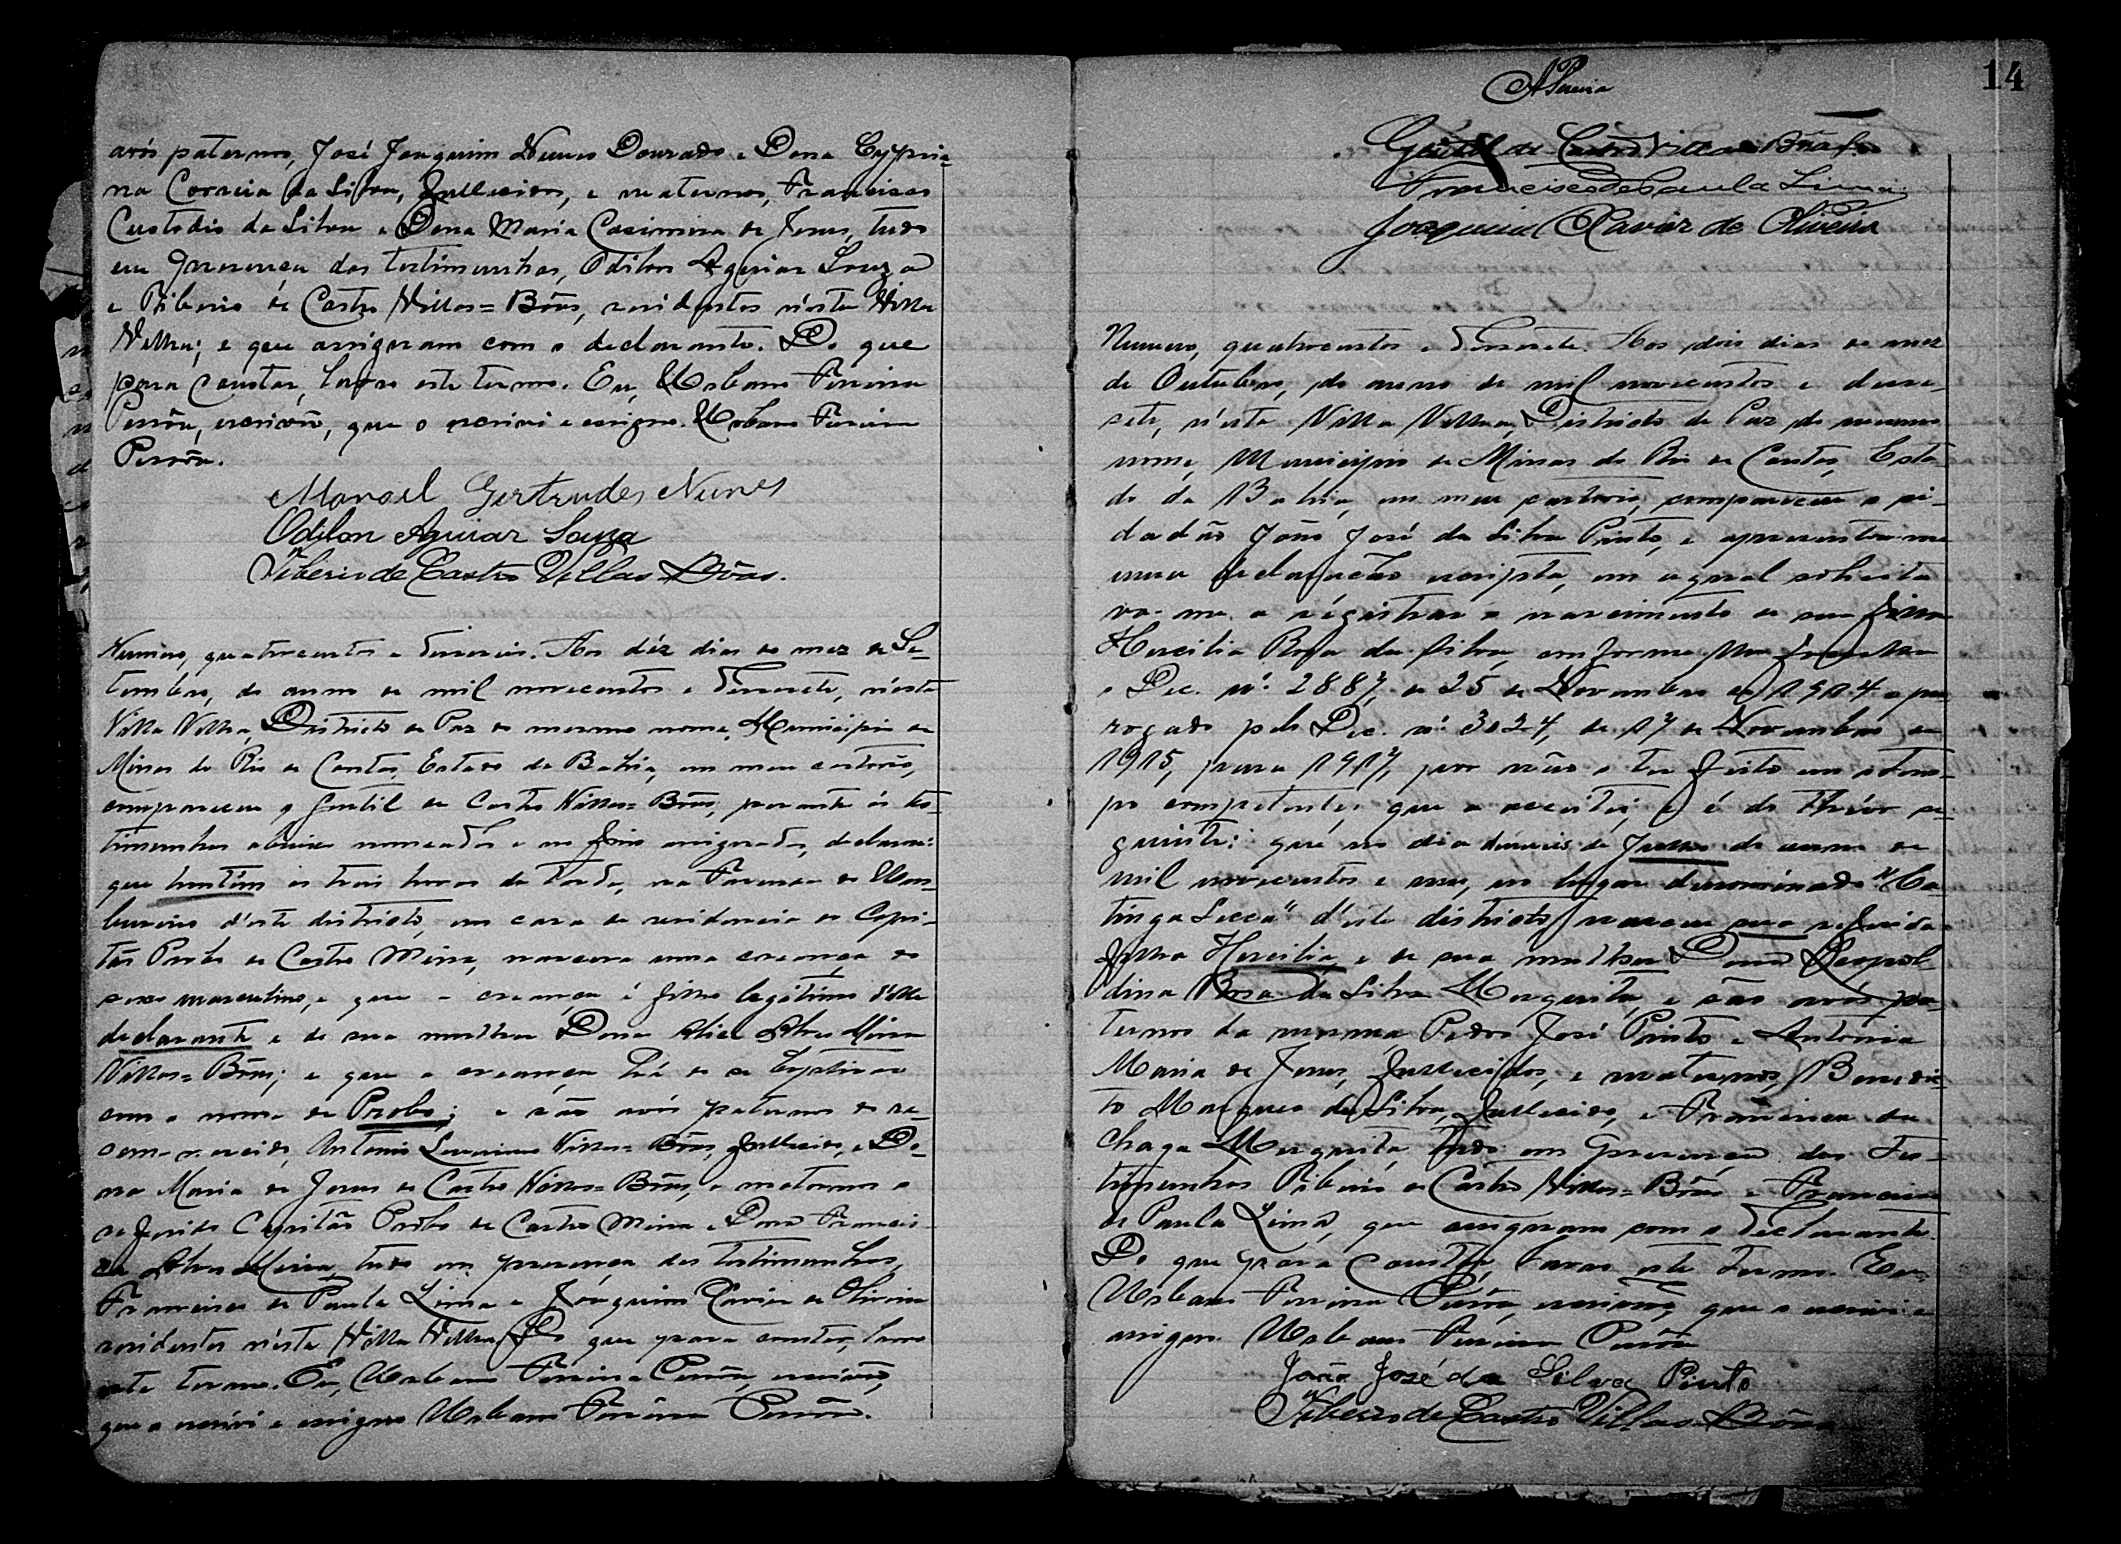 avós paternos, José Joaquim Nunes Dourado e Dona Cypria-
na Correia da Silva, fallecidos, e maternos, Francisco
Custodio da Silva e Dona Maria Casimira de Jesus, tudo
em presença das testimunhas, Odilon Aguiar Souza
e Tiberio de Castro Villas=Bôas, residentes n'esta Villa
Velha; e que assignam com o declarante. Do que
para constar, lavro este termo. Eu, Urbano Pereira
escrivão, que o escrivi e assigno. Urbano Pereira
Manoel Gertrudes Nunes
Odilon Aguiar Souza
Tiberio de Castro Villas Bôas.
Numero, quatrocentos e deseseis. Aos déz dias do mez de Se-
tembro, do anno de mil novecentos e desesete, n'esta
Villa Velha, Districto de Paz do mesmo nome, Municipio de
Minas do Rio de Contas, Estado da Bahia, em meu cartorio,
compareceu o Gentil de Castro Villas=Bôas, perante ás tes-
timunhas abaixo nomeadas e no fim assignadas, declarou:
que hontêm ás trez horas da tarde, na Fazenda do
d'este districto, em casa de residencia do Capi-
tão Probo de Castro Meira, nascera uma creança do
sexo masculino, e que a creança é filho legitimo d'elle
declarante e de sua mulher Dona Alves Meira
Villas=Bôas; e que a creança há de se baptisar
com o nome de Probo; e são avós paternos do re-
cem-nascido, Antonio Villas=Bôas, fallecido, e Do-
na Maria de Jesus de Castro Villas=Bôas, e maternos o
referido Capitão Probo de Castro Meira e Dona Francis-
ca Alves Meira, tudo em presença das testimunhas,
Francisco de Paula Lima e Joaquim Xavier de Oliveira
residentes n'esta Villa Velha. Do que para constar, lavro
este termo. Eu, Urbano Pereira escrivão,
que o escrivi e assigno Urbano Pereira
14
Gentil de Castro Villas Bôas
Francisco de Paula Lima
Joaquim Xavier de Oliveira
Numero, quatrocentos e desesete. Aos dois dias do mez
de Outubro, do anno de mil novecentos e dese-
sete, n'esta Villa Velha, Districto de Paz do mesmo
nome, Municipio de Minas do Rio de Contas, Esta-
do da Bahia, em meu cartorio, compareceu o ci-
dadão João José da Silva Pinto, e apresentou-me
uma declaração escripta, em a qual solicita
va-me a registrar o nascimento de sua filha
Hercilia Rosa da Silva, conforme lhe faculta
o Dec. nº 2887, de 25 de Novembro de 1914 e pro-
rogado pelo Dec. nº 3024, de 17 de Novembro de
1915, para 1917, por não o ter feito em o tem-
po competente; que a acceitei, e é do theôr se-
guinte: que no dia deseseis de Julho do anno de
mil novecentos e um, no lugar denominado "Ca-
tinga Secca" d'este districto nasceu sua referida
filha Hercilia, e de sua mulher Dona Leopol-
dina Rosa da Silva Mesquita, e são avós pa-
ternos da mesma, Pedro José Pinto e Antonia
Maria de Jesus, fallecidos, e maternos, Benedic-
to Marques da Silva, fallecido, e Francisca das
Chaga Mesquita, tudo em presença das tes-
timunhas Tiberio de Castro Villas=Bôas e Francisco
de Paula Lima, que assignam com o declarante.
Do que para constar, lavro este termo. Eu
Urbano Pereira escrivão, que o escrivi e
assigno. Urbano Pereira
João José da Silva Pinto
Tiberio de Castro Villas Bôas